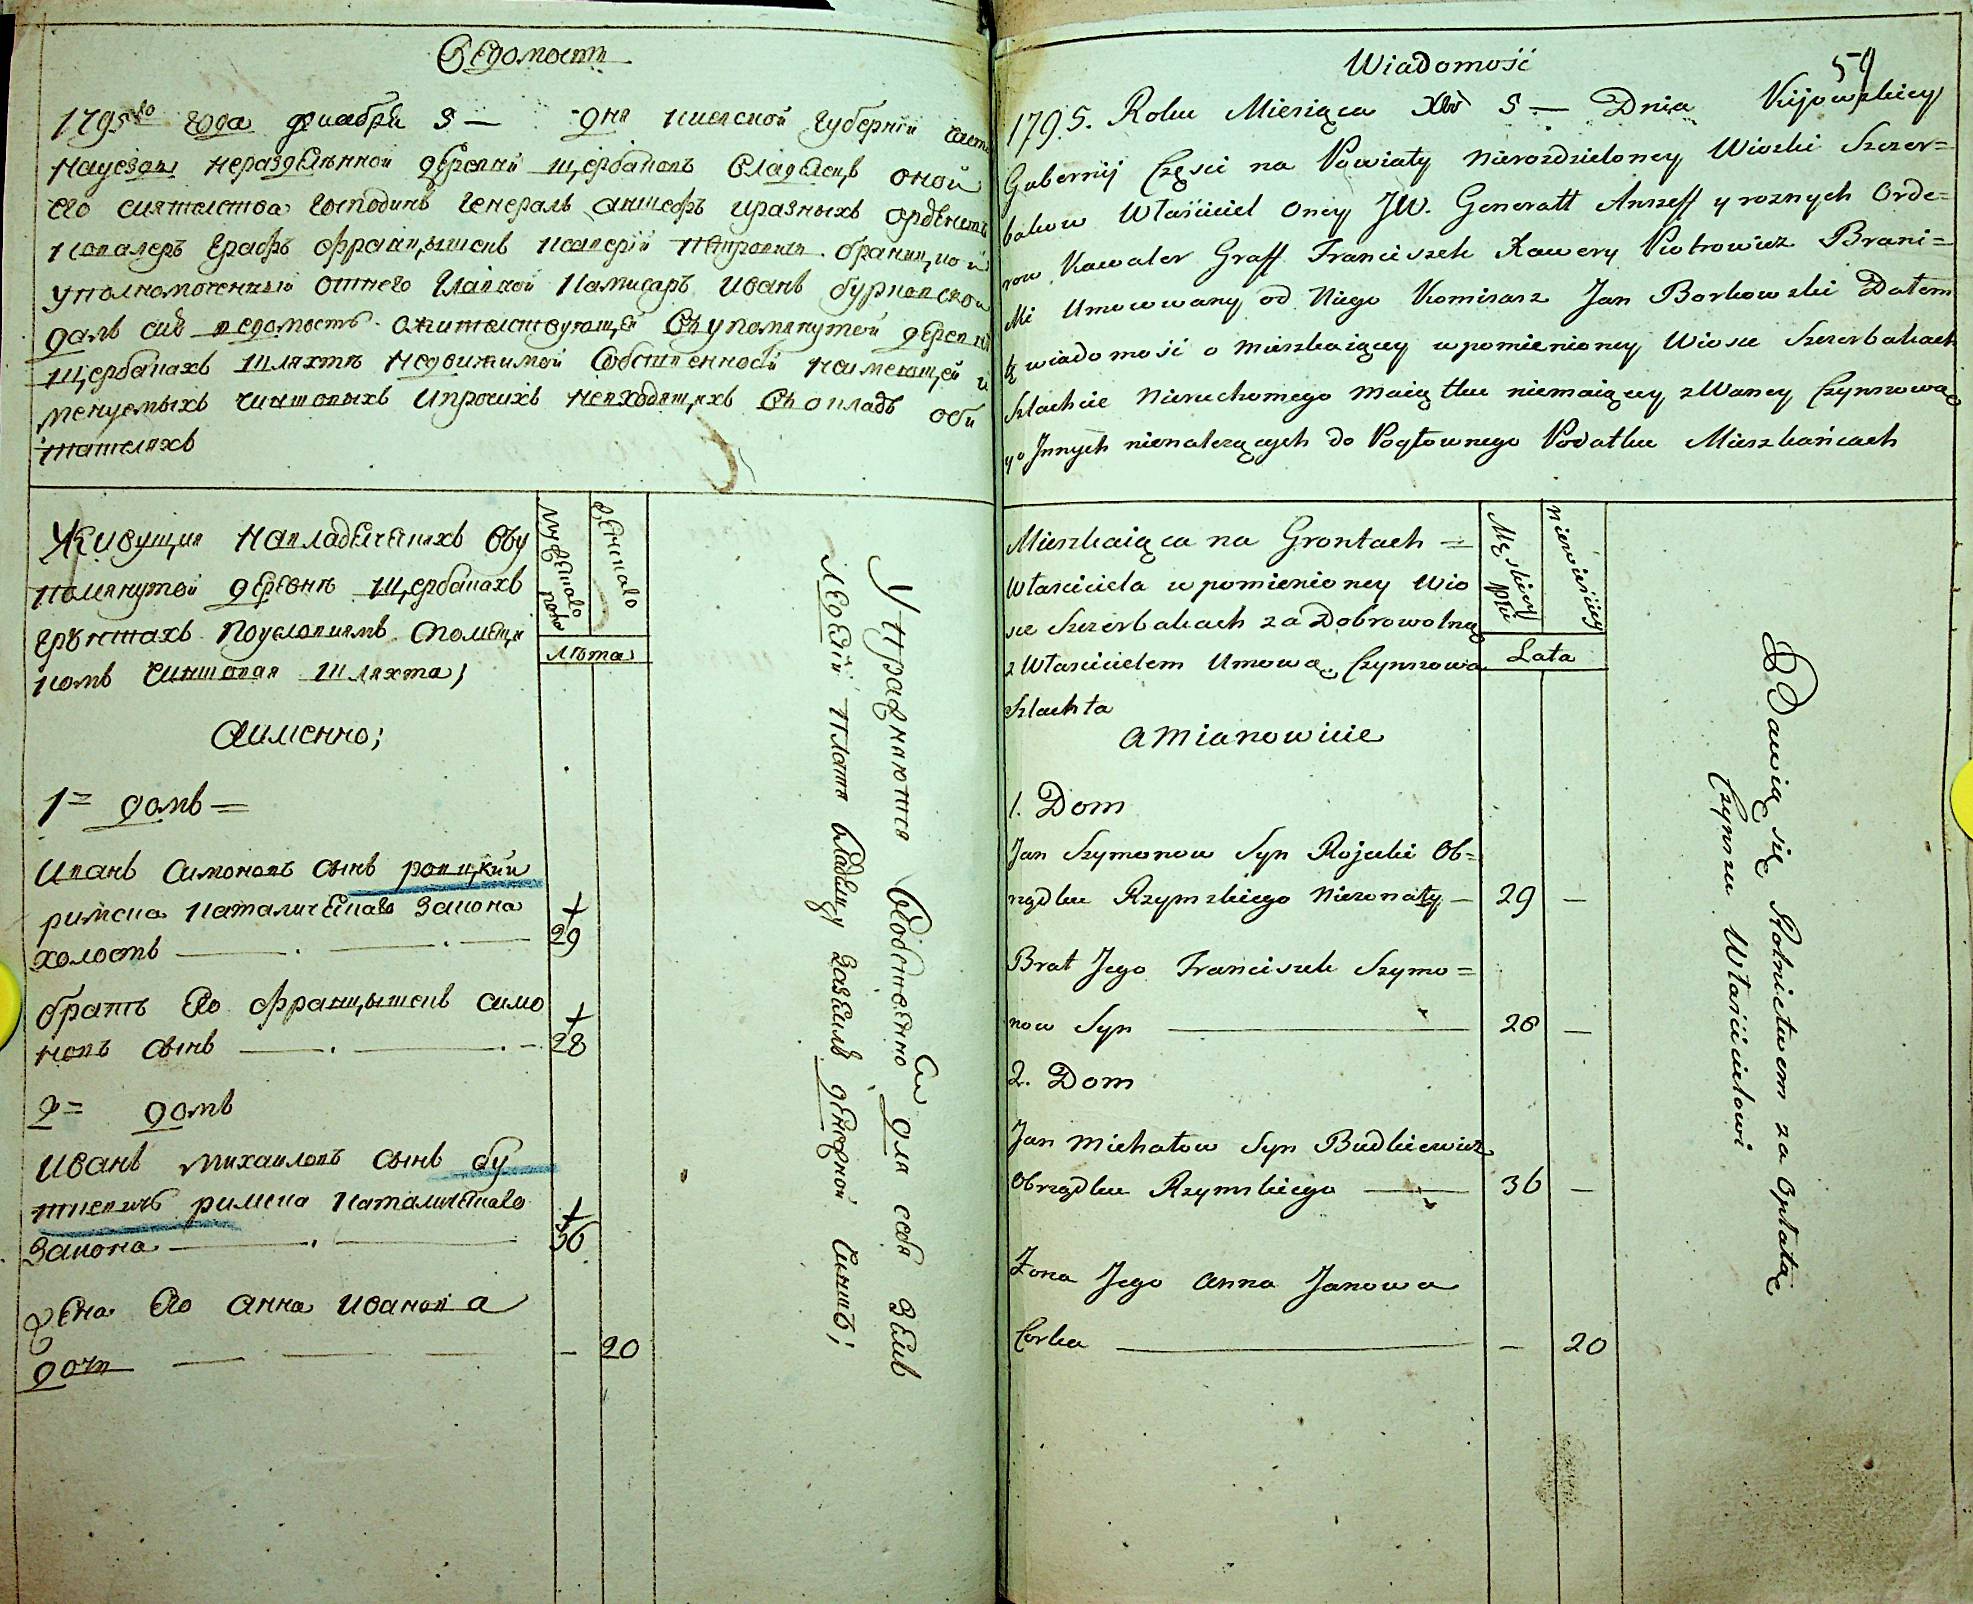 Ведомость
1795го года декабря 5 — дня киевской губернии части
науезди неразделенной деревни щербаковъ владелецъ оной
его сиятелство господинъ генералъ аншефъ иразныхъ орденовъ
кавалеръ графъ францышекъ
уполномоченный отнего главной камисаръ иванъ
далъ сию ведомость ожителствующей въупомянутой деревни
щербакахъ шляхтъ недвижимой собственности неимеющей и
менуемыхъ чиншовыхъ ипрочихъ невходящихъ въ окладъ оби
тателяхъ
Живущия навладелченихъ въу
помянутой деревнъ щербакахъ
грунтахъ поусловиямъ спомещи
комъ чиншовая шляхта;
аименно;
мужескаго полу
женскаго
лъта
1= домъ =
иванъ симоновъ сынъ роицкий
римска каталическаго закона
холостъ — 29
братъ его францышекъ симо
новъ сынъ — 28
2= домъ
иванъ михаиловъ сынъ бу
ткевичъ римска каталическаго
закона — 36
жена его анна иванова
дочь — — 20
Упражняются въсобственно для себя земле
делии платя владелцу заземлъ денежной чиншъ;
59
Wiadomość
1795. Roku Miesiąca Xbr 5 — Dnia Kijowskiey
Gubernij Części na Powiaty nierozdzieloney Wioski Szczer=
bakow Właściciel oney JW. Generałł Anszeff y roznych Orde=
row Kawaler Graff Franciszek Xawery Piotrowicz Brani=
cki Umocowany od Niego Komisarz Jan Borkowski Dałem
tę wiadomość o mieszkaiącey wpomienioney Wiosce Szczerbakach
Szlachcie Nieruchomego maiątku niemaiącey zwaney Czynszową
y o Jnnych nienależących do Pogłownego Podatku Mieszkańcach
Mieszkaiąca na Grontach =
Właściciela wpomienioney Wio
sce Szczerbakach za Dobrowolną
z Właścicielem Umową Czynszowa
Szlachta
a Mianowicie
Męskiey płci
Niewieściey
Lata
1. Dom
Jan Szymonow Syn Rojecki Ob=
rządku Rzymskiego Nieżonaty — 29 —
Brat Jego Franciszek Szymo=
now Syn — 28 —
2. Dom
Jan Michałow Syn Budkiewicz
Obrządku Rzymskiego — 36 —
Żona Jego Anna Janowa
Corka — — 20
Bawią się Rolnictwem za Opłatą
Czynszu Właścicielowi